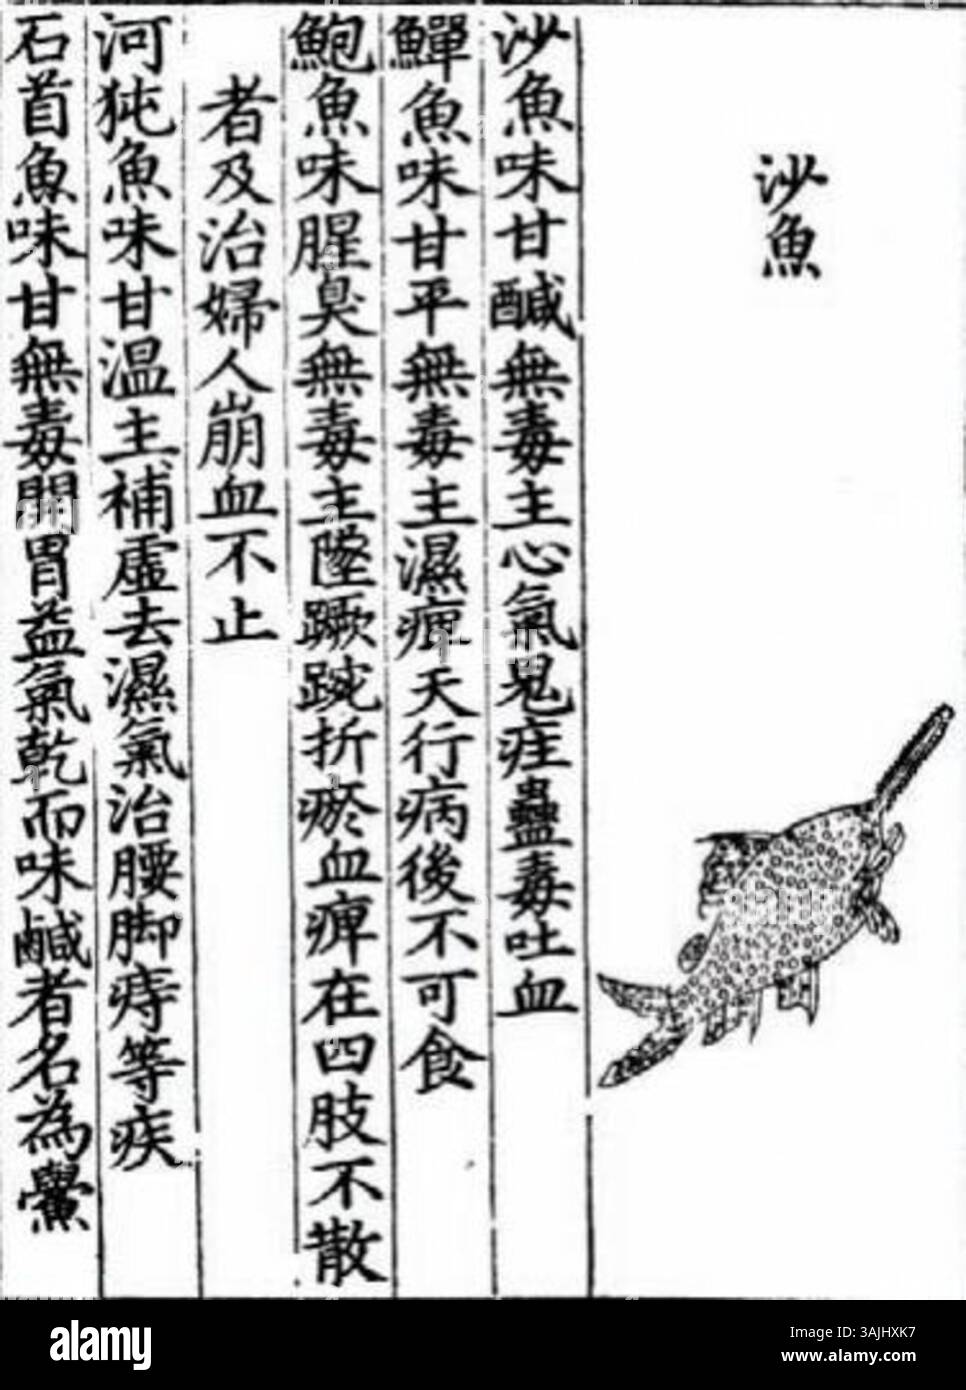 沙魚
沙魚味甘鹹無毒主心氣鬼疰蠱毒吐血
鱓魚味甘平無毒主濕痹天行病後不可食
鮑魚味腥臭無毒主墜蹶踠折瘀血痹在四肢不散
者及治婦人崩血不止
河㹠魚味甘温主補虛去濕氣治腰脚痔等疾
石首魚味甘無毒開胃益氣乾而味鹹者名為鯗
alamy
Image ID: 3AJHXK7
www.alamy.com